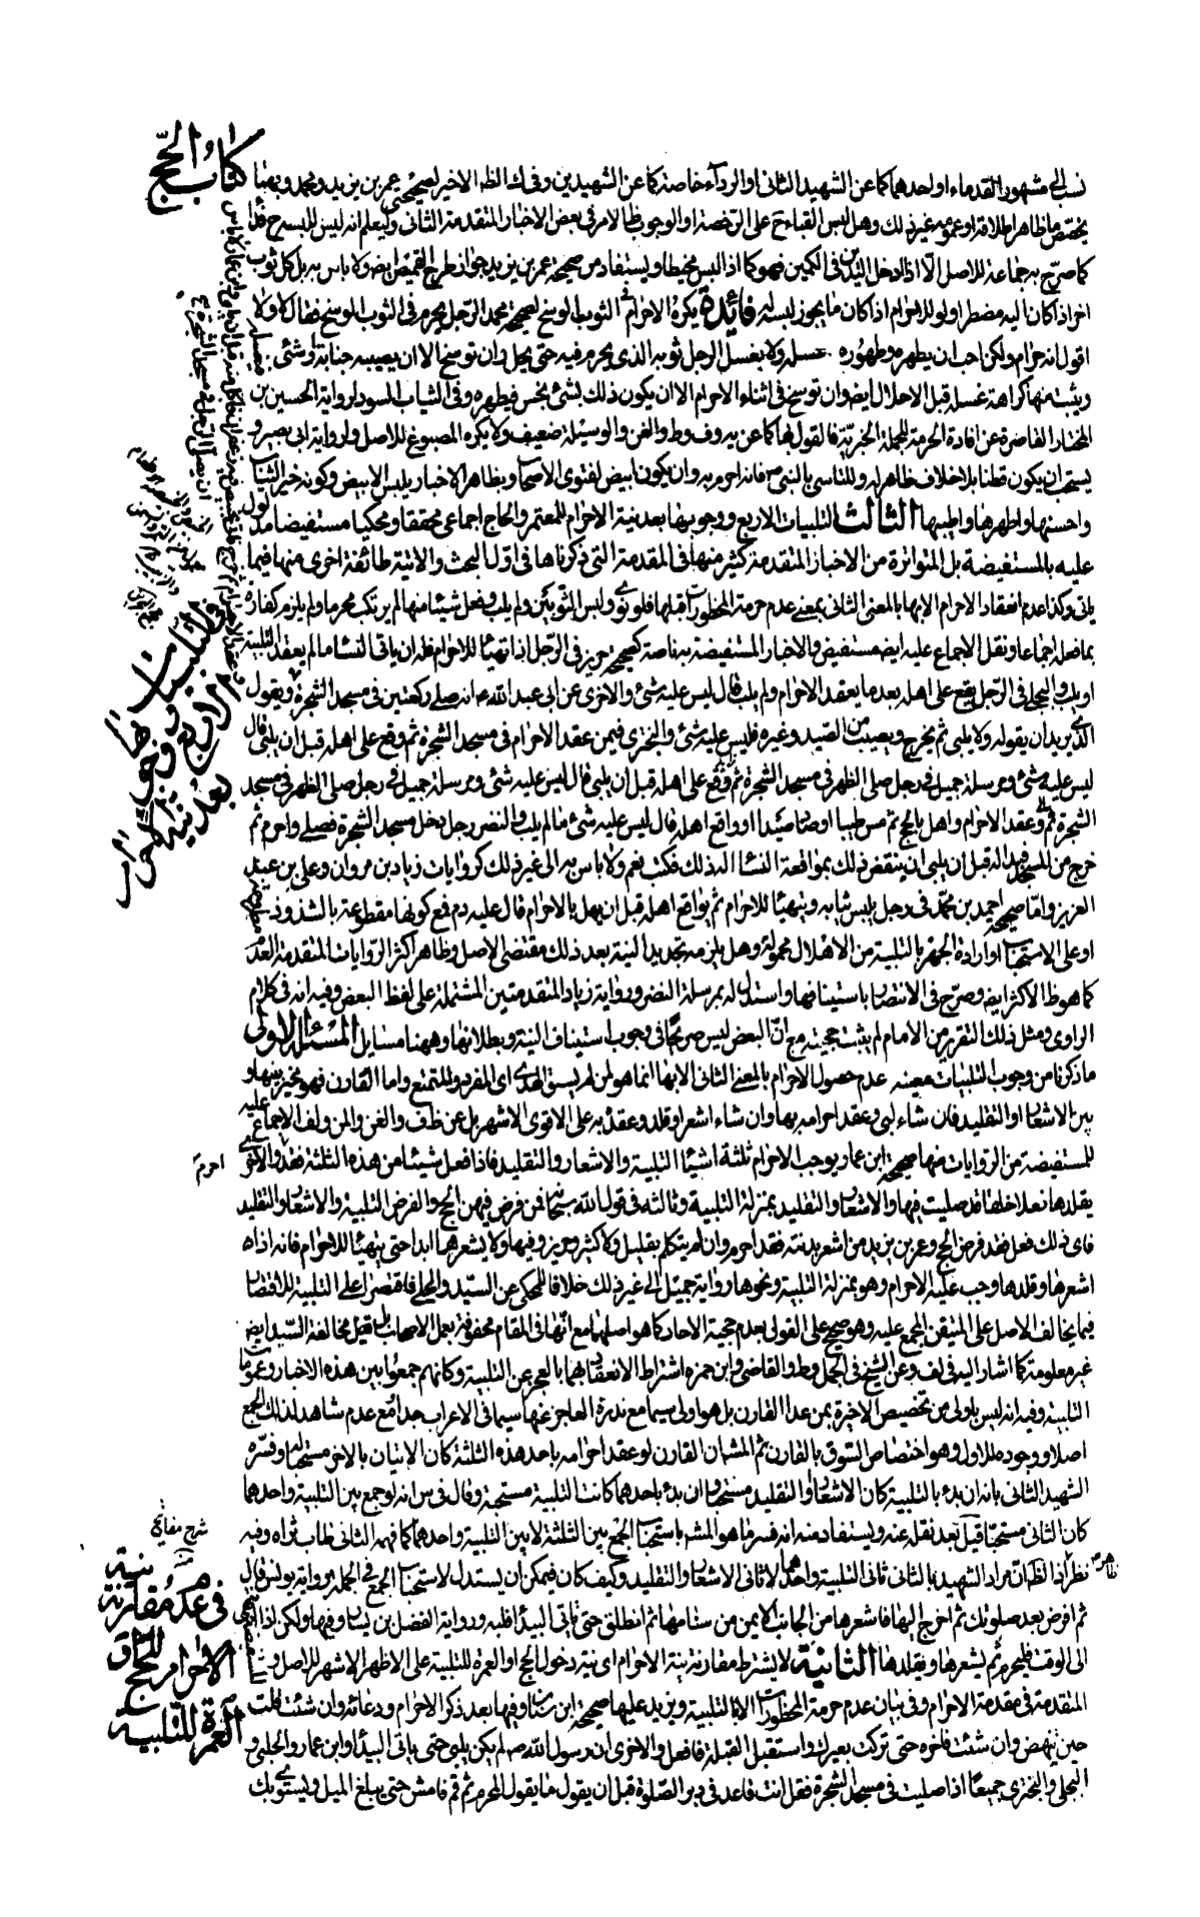 كتاب الحجّ
نسب الى مشهور القدماء او احدهما كما عن الشهيد الثانى او الرداء خاصة كما عن الشهيدين وفى ك الظ الاخير لصحيحى عمر بن يزيد ومحمد وبهما
يختص ما ظاهر اطلاقه او عمومه غير ذلك وهل لبس القباء ح على الرخصة او الوجوب ظ الامر فى بعض الاخبار المتقدمة الثانى وليعلم انه ليس للبسه ح فداء
كما صرّح به جماعة للاصل الا اذا ادخل اليدين فى الكمين فهو كما اذا لبس مخيطا ويستفاد من صحيحة عمر بن يزيد جواز طرح القميص ايضا ولا باس به بل كل ثوب
اخر اذا كان اليه مضطرا ولو للاحرام اذا كان ما يجوز لبسه له فائدة يكره الاحرام فى الثوب الوسخ لصحيحة محمد الرجل يحرم فى الثوب الوسخ فقال لا ولا
اقول انه حرام ولكن احب ان يطهره وطهوره غسله ولا يغسل الرجل ثوبه الذى يحرم فيه حتى يحل وان توسخ الا ان يصيبه جنابة او شئ
ويثبت منها كراهة غسله قبل الاحلال ايضا وان توسخ فى اثناء الاحرام الا ان يكون ذلك بشئ نجس فيطهره وفى الثياب السود لرواية الحسين بن
المختار القاصرة عن افادة الحرمة للجملة الخبريّة فالقول بها كما عن يه وف وط والغن والوسيلة ضعيف ولا يكره المصبوغ للاصل ولرواية ابى بصير و
يستحب ان يكون قطنا بلا خلاف ظاهر له وللتاسى بالنبى ص فانه احرم به وان يكون ابيض لفتوى الاصحاب وبظاهر الاخبار يلبس الابيض وكونه خير الثياب
واحسنها واطهرها واطيبها الثالث التلبيات الاربع ووجوبها بعد نية الاحرام للمعتمر والحاج اجماعى محققا ومحكيا مستفيضا مدلول
عليه بالمستفيضة بل المتواترة من الاخبار المتقدمة كثير منها فى المقدمة التى ذكرناها فى اول البحث والاتية طائفة اخرى منها فيما
ياتى وكذا عدم انعقاد الاحرام الا بها بالمعنى الثانى بمعنى عدم حرمة المحظورات قبلها فلو نوى ولبس الثوبين ولم يلب وفعل شيئا منها لم يرتكب محرما ولم يلزمه كفارة
بما فعله اجماعا ونقل الاجماع عليه ايضا مستفيض والاخبار المستفيضة به ناصة كصحيحة حريز فى الرّجل اذا تهيئا للاحرام فله ان ياتى النساء ما لم يعقد التلبية
او يلب والبجلى فى الرّجل يقع على اهله بعد ما يعقد الاحرام ولم يلب قال ليس عليه شئ والاخرى عن ابى عبد الله ع انه صلى ركعتين فى مسجد الشجرة ويقول
الذى يريد ان يقوله ولا يلبى ثم يخرج ويصيب من الصيد وغيره فليس عليه شئ والبخترى فيمن عقد الاحرام فى مسجد الشجرة ثم وقع على اهله قبل ان يلبى قال
ليس عليه شئ ومرسلة جميل فى رجل صلى الظهر فى مسجد الشجرة ثم وقع على اهله قبل ان يلبى قال ليس عليه شئ ومرسلة جميل فى رجل صلى الظهر فى مسجد
الشجرة ثم وعقد الاحرام واهل بالحج ثم مس طيبا او صاد صيدا او واقع اهله قال ليس عليه شئ ما لم يلب والنضر رجل دخل مسجد الشجرة فصلى واحرم ثم
خرج من المسجد فبدا له قبل ان يلبى ان ينقض ذلك بمواقعة النساء اله ذلك فكتب نعم ولا باس به الى غير ذلك كروايات زياد بن مروان وعلى بن عبد
العزيز وامّا صحيحة احمد بن محمّد فى رجل يلبس ثيابه ويتهيئا للاحرام ثم يواقع اهله قبل ان يهل بالاحرام قال عليه دم فمع كونها مقطوعة بالشذوذ
او على الاستحباب او ارادة الجهر بالتلبية من الاهلال محمولة وهل يلزمه تجديد النية بعد ذلك مقتضى الاصل وظاهر اكثر الروايات المتقدمة العدم
كما هو ظ الاكثر ايضا وصرّح فى الانتصار باستينافها واستدل له بمرسلة النضر ورواية زياد المتقدمتين المشتملة على لفظ البعض وفيه انه فى كلام
الراوى ومثل ذلك التقرير من الامام لم يثبت حجيته مع انّ البعض ليس صريحا فى وجوب استيناف النية وبطلانها وههنا مسايل المسئلة الاولى
ما ذكرنا من وجوب التلبيات معينه عدم حصول الاحرام بالمعنى الثانى الا بها انما هو لمن لم يسق الهدى اى المفرد والمتمتع واما القارن فهو مخير بينها و
بين الاشعار او التقليد فان شاء لبى وعقد احرامه بها وان شاء اشعر او قلد وعقد به على الاقوى الاشهر بل عن ظ ف والغن والمن ولف الاجماع عليه
للمستفيضة من الروايات منها صحيحة ابن عمار يوجب الاحرام ثلثة اشيئا التلبية والاشعار والتقليد فاذا فعل شيئا من هذه الثلثة فقد احرم والاخرى
يقلدها نعلا خلقا قد صليت فيها والاشعار والتقليد بمنزلة التلبية وثالثه فى قول الله سبحانه فمن فرض فيهن الحج والفرض التلبية والاشعار والتقليد
فاى ذلك فعل فقد فرض الحج وعمر بن يزيد من اشعر بدنته فقد احرم وان لم يتكلم بقليل ولا كثير وحريز وفيها ولا يشعرها ابدا حتى يتهيئا للاحرام فانه اذا
اشعرها وقلدها وجب عليه الاحرام وهو بمنزلة التلبية ونحوها رواية جميل الى غير ذلك خلافا للمحكى عن السيّد والحلى فاقتصرا على التلبية للاقتصار
فيما يخالف الاصل على المتيقن المجمع عليه وهو صحيح على القول بعدم حجية الاحاد كما هو اصلهما مع انها فى المقام محفوفة بعمل الاصحاب بل قيل مخالفة السيّد ايضا
غير معلومة كما اشار اليه فى لف وعن الشيخ فى الجمل وط والقاضى وابن حمزه اشتراط الانعقاد بهما بالعجز عن التلبية وكانهم جمعوا بين هذه الاخبار وعمومات
التلبية وفيه انه ليس باولى من تخصيص الاخيرة بمن عدا القارن بل هو اولى سيما مع ندرة العاجز عنها سيما فى الاعراب جدا مع عدم شاهد لذلك الجمع
اصلا ووجوده للاول وهو اختصاص السّوق بالقارن ثم المشهور ان القارن لو عقد احرامه باحد هذه الثلثة كان الاتيان بالاخر مستحبا له وفسّره
الشهيد الثانى بانه ان بدء بالتلبية كان الاشعار او التقليد مستحبا وان بدء باحدهما كانت التلبية مستحبة وقال فى س انه لو جمع بين التلبية واحدهما
كان الثانى مستحبا قيل بعد نقله عنه ويستفاد منه انه فسر ما هو المشهور باستحباب الجمع بين الثلثة لا بين التلبية واحدهما كما فهمه الثانى طاب ثراه وفيه
نظر اذ الظاهر ان مراد الشهيد بالثانى ثانى التلبية واحدهما لا ثانى الاشعار والتقليد وكيف كان فيمكن ان يستدل لاستحباب الجمع فى الجملة برواية يونس قال
ثم افرض بعد صلوتك ثم اخرج اليها فاشعرها من الجانب الايمن من سنامها ثم انطلق حتى تاتى البيداء فلبه ورواية الفضل بن يسار وفيها ولكن اذا انتهى
الى الوقت فليحرم ثم يشعرها ويقلدها الثانية لا يشترط مقارنة نية الاحرام اى نية دخول الحج او العمرة للتلبية على الاظهر الاشهر للاصل و
المتقدمة فى مقدمة الاحرام وفى بيان عدم حرمة المحظورات الا بالتلبية ويزيد عليها صحيحة ابن سنان وفيها بعد ذكر الاحرام ودعائه وان شئت قلت
حين تنهض وان شئت فاخره حتى تركب بعيرك واستقبل القبلة فافعل والاخرى ان رسول الله ص لم يكن يلبى حتى ياتى البيداء وابن عمار والحلبى و
البجلى والبخترى جميعا اذا صليت فى مسجد الشجرة فقل انت قاعد فى دبر الصّلوة قبل ان يقوم ما يقول المحرم ثم قم فامش حتى يبلغ الميل وليستوى بك
فى التلبيات
الاربع ووجوبها
بعد نية الاحرام
احرم
شرح مفاتيح
فى عدم مقارنة نية
الاحرام للحاج او
العمرة للتلبية